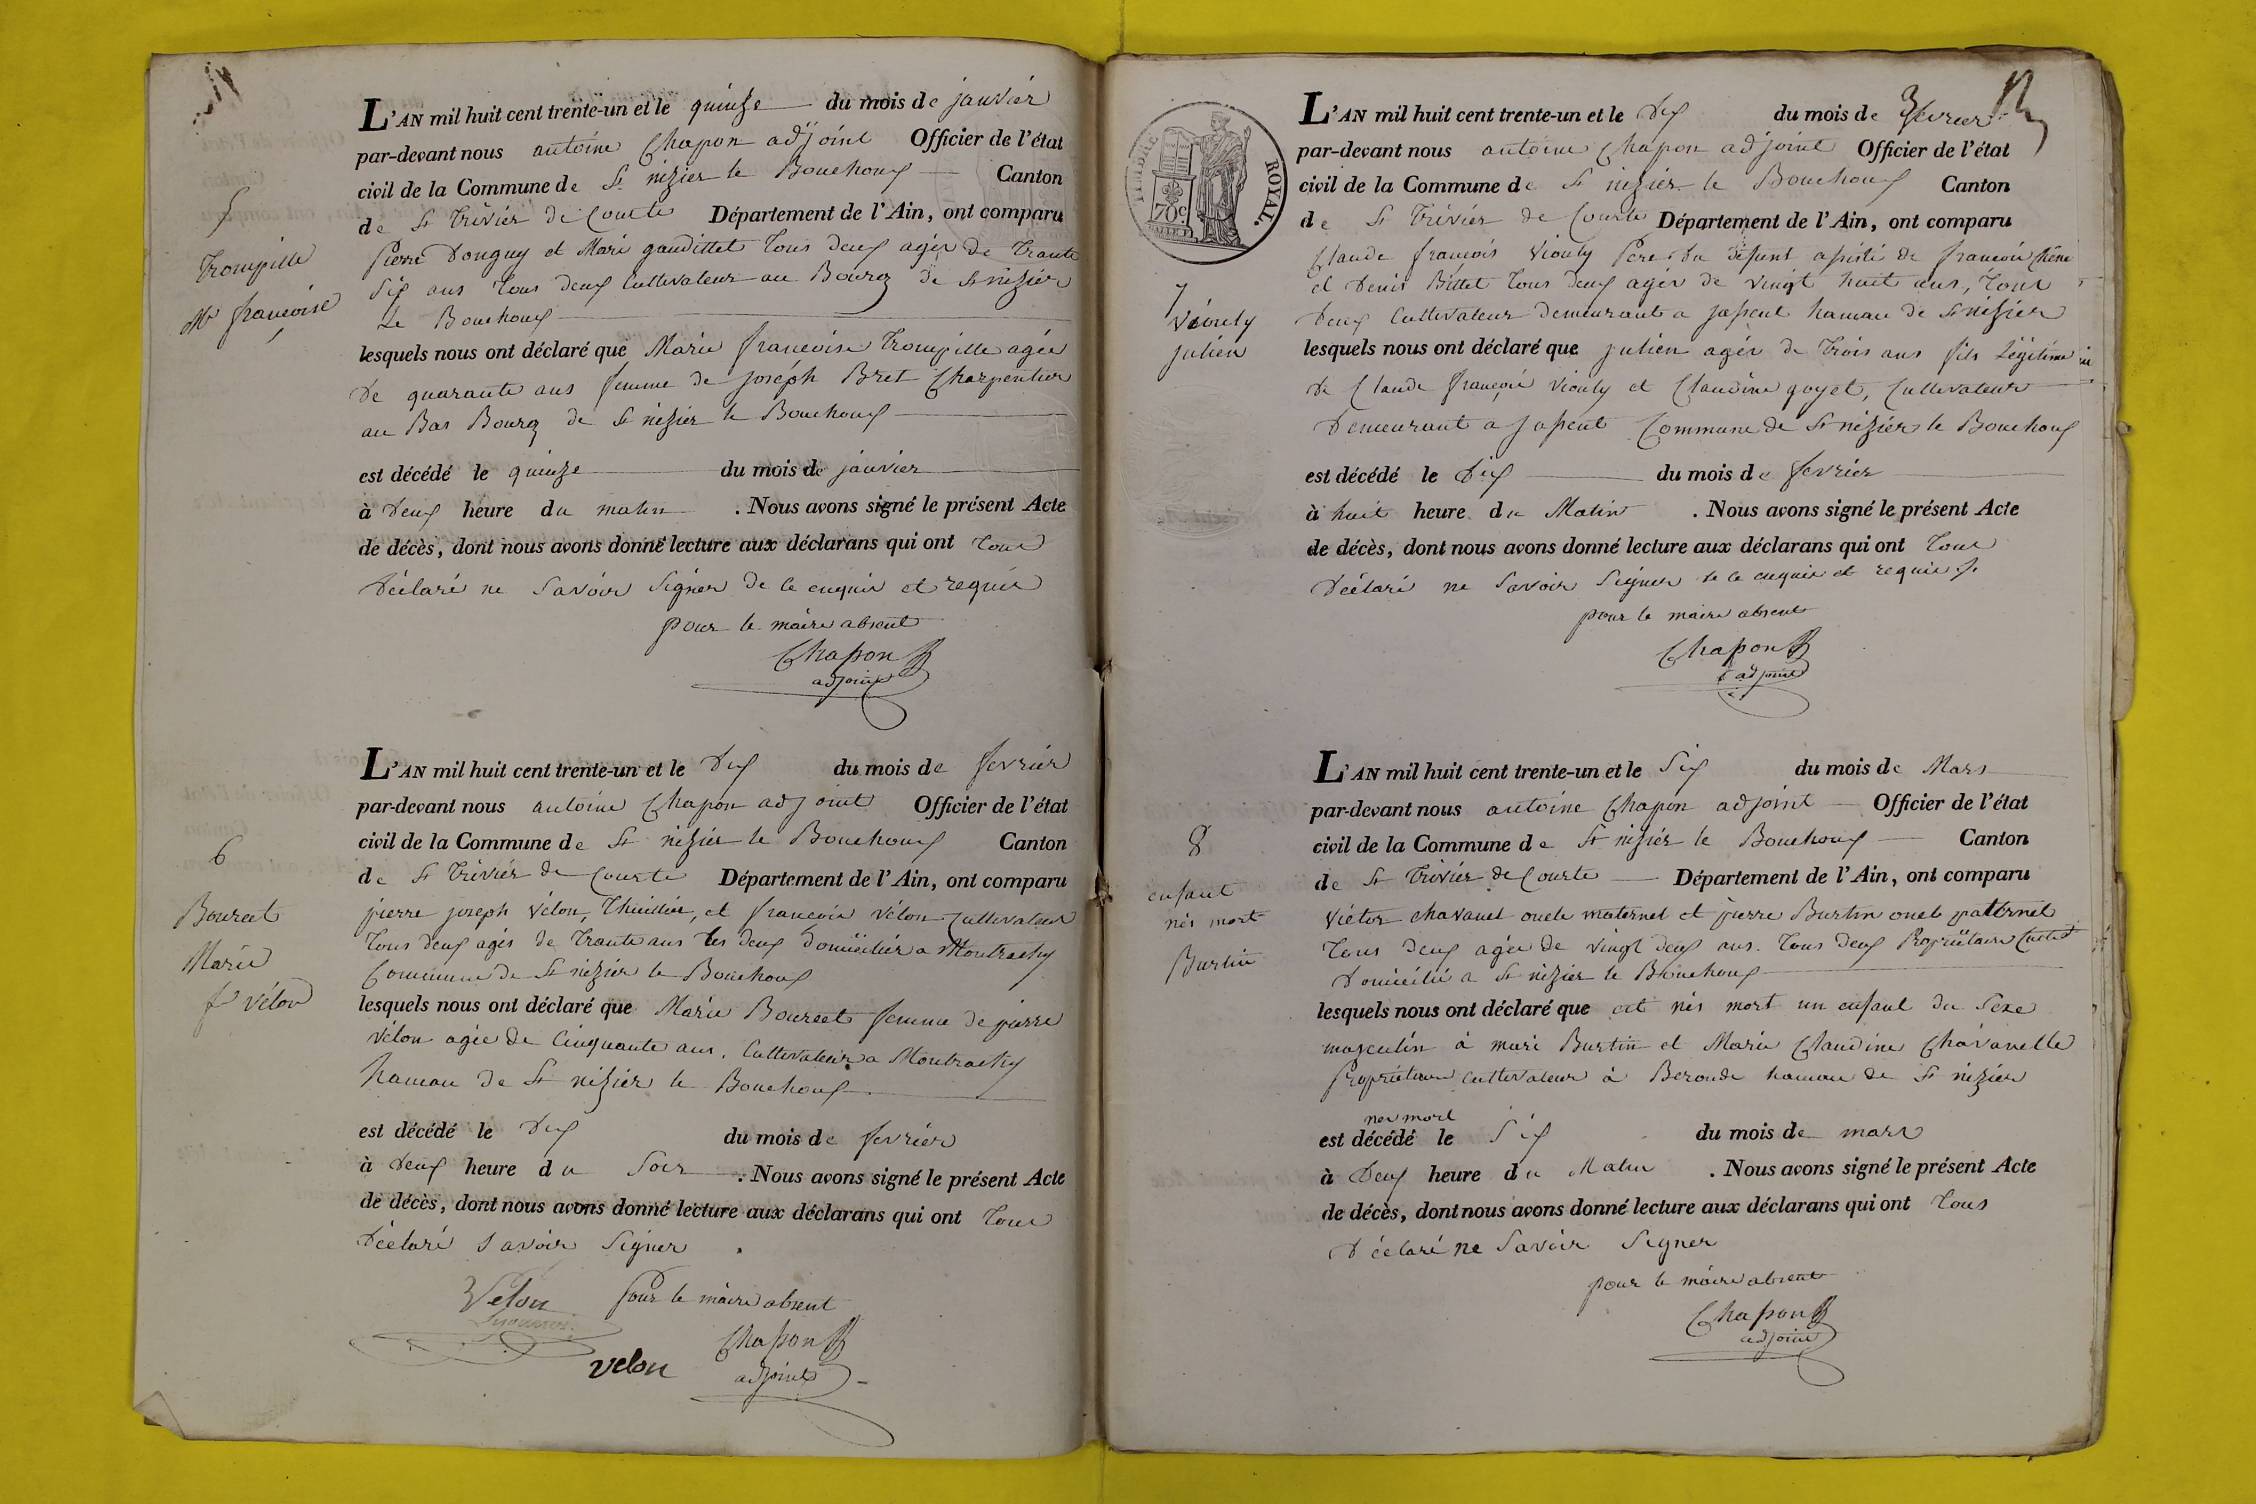 5
Trompille
Me françoise
L'AN mil huit cent trente-un et le quinze du mois de janvier
par-devant nous antoine Chapon adjoint Officier de l'état
civil de la Commune de St nizier le Bouchoux Canton
de St Trivier de Courte Département de l'Ain, ont comparu
Pierre Donguy et Marie gaudittet Tous deux agés de Trante
Six ans Tous deux Cultivateur au Bourg de St nizier
Le Bouchoux
lesquels nous ont déclaré que Marie françoise Trompille agée
De quarante ans femme de joséph Bret Charpentier
au Bas Bourg de St nizier le Bouchoux
est décédé le quinze du mois de janvier
à Deux heure du matin . Nous avons signé le présent Acte
de décès, dont nous avons donné lecture aux déclarans qui ont Tous
Déclaré ne Savoir Signer de ce enquis et requis
pour le maire absent
Chapon
adjoint
6
Bourcet
Marie
fe vélon
L'AN mil huit cent trente-un et le Dix du mois de fevrier
par-devant nous antoine Chapon adjoint Officier de l'état
civil de la Commune de St nizier le Bouchoux Canton
de St Trivier de Courte Département de l'Ain, ont comparu
pierre joseph vélon, Thuillier, et françois vélon Cultivateur
Tous Deux agés de Trante ans les deux domicilier a Montrachy
Commune de St nizier le Bouchoux
lesquels nous ont déclaré que Marie Bourcet femme de pierre
vélon agée de Cinquante ans, Cultivateur a Montrachy
hameau de St nizier le Bouchoux
est décédé le Dix du mois de fevrier
à Deux heure du Soir . Nous avons signé le présent Acte
de décès, dont nous avons donné lecture aux déclarans qui ont Tous
Déclaré Savoir Signer
Velon pour le maire absent
Chapon
velon adjoint
TIMBRE ROYAL.
70c
7
Viouly
julien
L'AN mil huit cent trente-un et le Dix du mois de fevrier
par-devant nous antoine Chapon adjoint Officier de l'état
civil de la Commune de St nizier le Bouchoux Canton
de St Trivier de Courte Département de l'Ain, ont comparu
Claude françois Viouly Pere du défunt assisté de françois Chêne
et Denis Bittet Tous deux agés de vingt huit ans, Tous
Deux Cultivateur demeurant a jassent hameau de St nizier
lesquels nous ont déclaré que julien agés de Trois ans fils Légitime
de Claude françois Viouly et Claudine goyet, Cultivateur
Demeurant a jassent Commune de St nizier le Bouchoux
est décédé le Dix du mois de fevrier
à huit heure du Matin . Nous avons signé le présent Acte
de décès, dont nous avons donné lecture aux déclarans qui ont Tous
Déclaré ne Savoir Signer de ce enquis et requis
pour le maire absent
Chapon
adjoint
8
enfant
nés mort
Burtin
L'AN mil huit cent trente-un et le Six du mois de Mars
par-devant nous antoine Chapon adjoint Officier de l'état
civil de la Commune de St nizier le Bouchoux Canton
de St Trivier de Courte Département de l'Ain, ont comparu
Victor chavanel oncle maternel et pierre Burtin oncle paternel
Tous deux agée de vingt deux ans. Tous deux Propriétaire Cult
Domicilié a St nizier le Bouchoux
lesquels nous ont déclaré que est nés mort un enfant du Sexe
masculin à mari Burtin et Marie Claudine Chavanelle
Propriétaire Cultivateur à Beronde hameau de St nizier
nes mort
est décédé le Six du mois de mars
à Deux heure du Matin . Nous avons signé le présent Acte
de décès, dont nous avons donné lecture aux déclarans qui ont Tous
Déclaré ne Savoir Signer
pour le maire absent
Chapon
adjoint